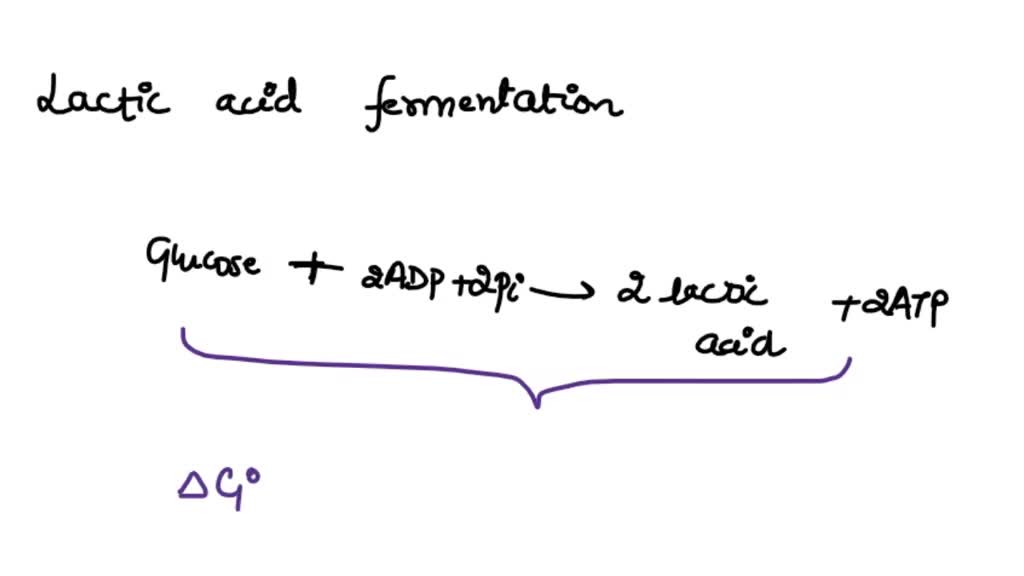 Lactic acid fermentation
Glucose + 2ADP+2Pi → 2 lactic acid +2ATP
ΔG°